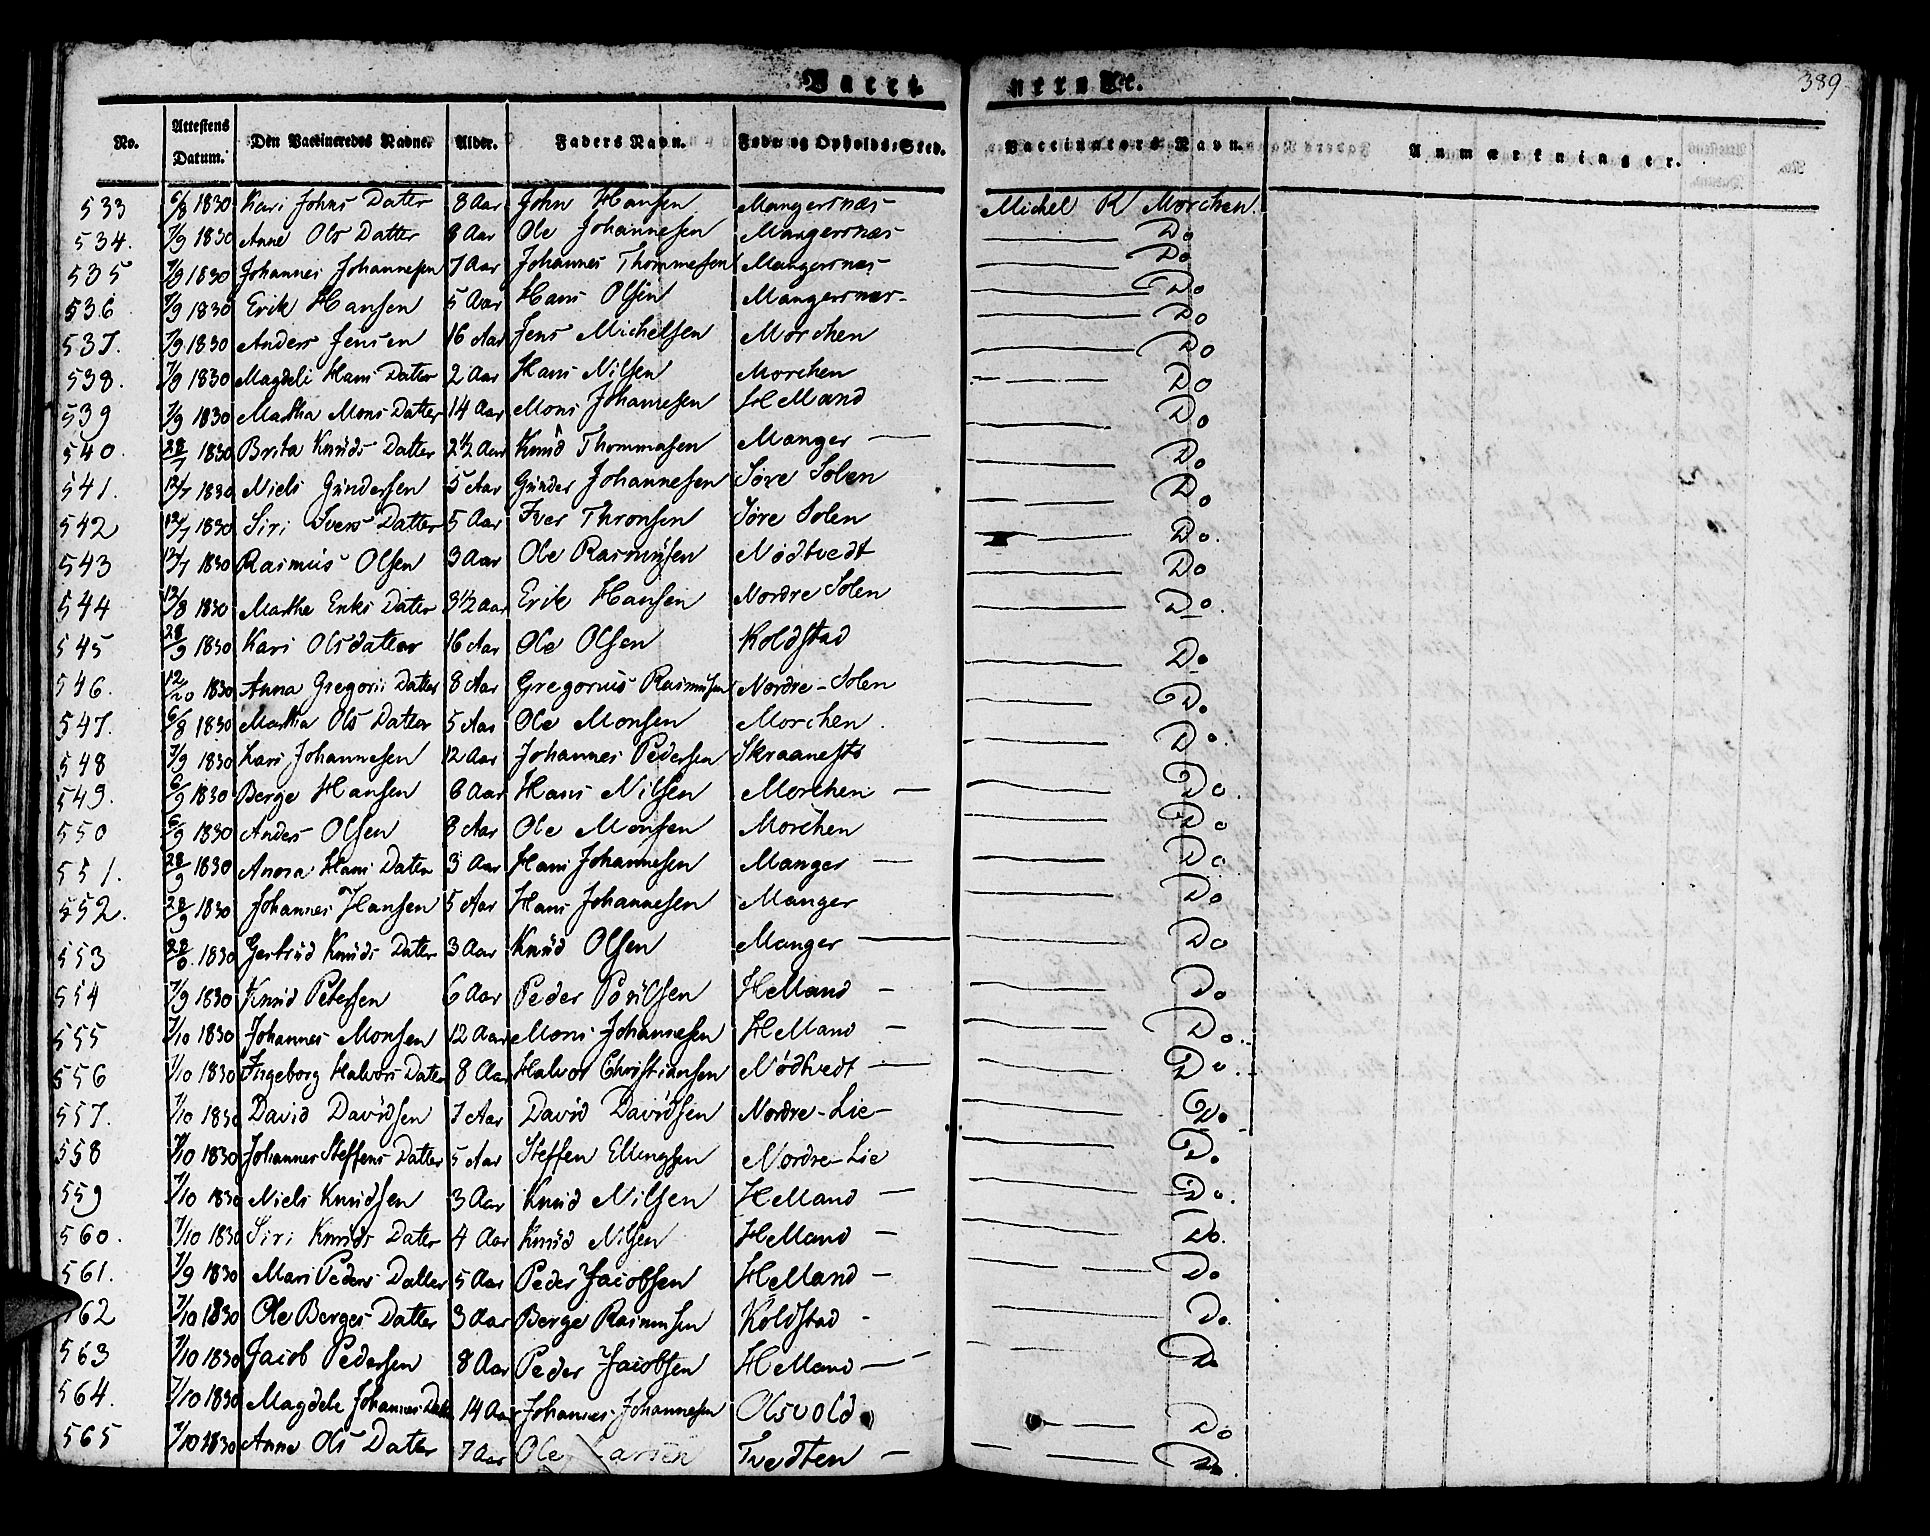 389
Vacci nerede.
No. Attestens Datum. Den Vaccineredes Navne. Alder. Faders Navn. Føde og Opholds-Sted. Vaccinators Navn. Anmærkninger.
533 6/8 1830 Kari Johns Datter 8 Aar John Hansen Mangersnæs Michel R Morchen.
534. 7/9 1830 Anne Ols Datter 8 Aar Ole Johannesen Mangersnæs Do
535 7/9 1830 Johannes Johannesen 7 Aar Johannes Thommesen Mangersnæs Do
536. 7/9 1830 Erik Hansen 5 Aar Hans Olsen Mangersnæs Do
537. 7/9 1830 Anders Jensen 16 Aar Jens Michelsen Morchen Do
538. 7/9 1830 Magdeli Hans Datter 2 Aar Hans Nilsen Morchen Do
539 7/9 1830 Martha Mons Datter 14 Aar Mons Johannesen Helland Do
540. 28/7 1830 Brita Knuds Datter 2 1/2 Aar Knud Thommasen Manger Do
541. 12/7 1830 Niels Gundersen 5 Aar Gunder Johannesen Søre Solen Do
542 12/7 1830 Siri Ivers Datter 5 Aar Iver Thronsen Søre Solen Do
543 12/7 1830 Rasmus Olsen 3 Aar Ole Rasmusen Nødtvedt Do.
544 12/8 1830 Marthe Eriks Datter 3 1/2 aar Erik Hansen Nordre Solen Do
545 28/9 1830 Kari Olsdatter 16 Aar Ole Olsen Koldstad Do.
546. 12/20 1830 Anna Gregorii Datter 8 Aar Gregorius Rasmusen Nordre-Solen Do
547. 6/8 1830 Martha Ols Datter 5 Aar Ole Monsen Morchen. Do
548 7/9 1830 Kari Johannesen 12 Aar Johannes Pedersen Skraanests Do.
549. 6/9 1830 Berge Hansen 6 Aar Hans Nilsen Morchen Do.
550 6/9 1830 Anders Olsen 8 Aar Ole Monsen Morchen Do
551. 28/9 1830 Anna Hans Datter 3 Aar Hans Johannesen Manger Do
552. 28/9 1830 Johannes Hansen 5 Aar Hans Johannesen Manger Do
553 1830 Gertrud Knuds Datter 3 Aar Knud Olsen Manger Do
554 7/9 1830 Knud Petersen 6 Aar Peder Povilsen Helland Do
555 7/10 1830 Johannes Monsen 12 Aar Mons Johannesen Helland Do.
556 7/10 1830 Ingeborg Halvors Datter 8 Aar Halvor Christiansen Nødtvedt Do.
557. 7/10 1830 David Davidsen 7 Aar David Davidsen Nordre-Lie Do
558 7/10 1830 Johannes Steffens Datter 5 Aar Steffen Ellingsen Nordre-Lie Do.
559 7/10 1830 Niels Knudsen 3 Aar Knud Nilsen Helland Do.
560. 7/10 1830 Siri Knuds Datter 4 Aar Knud Nilsen Helland Do.
561. 7/9 1830 Mari Peders Datter 5 Aar Peder Jacobsen Helland Do
562 7/10 1830 Ole Berges Datter 3 Aar Berge Rasmusen Koldstad Do.
563 7/10 1830 Jacob Pedersen 8 Aar Peder Jacobsen Helland Do
564. 7/10 1830 Magdele Johannes Datter 14 Aar Johannes Johannesen Olsvold Do
565 7/10 1830 Anne Ols Datter 7 Aar Ole Larsen Tvedten Do.